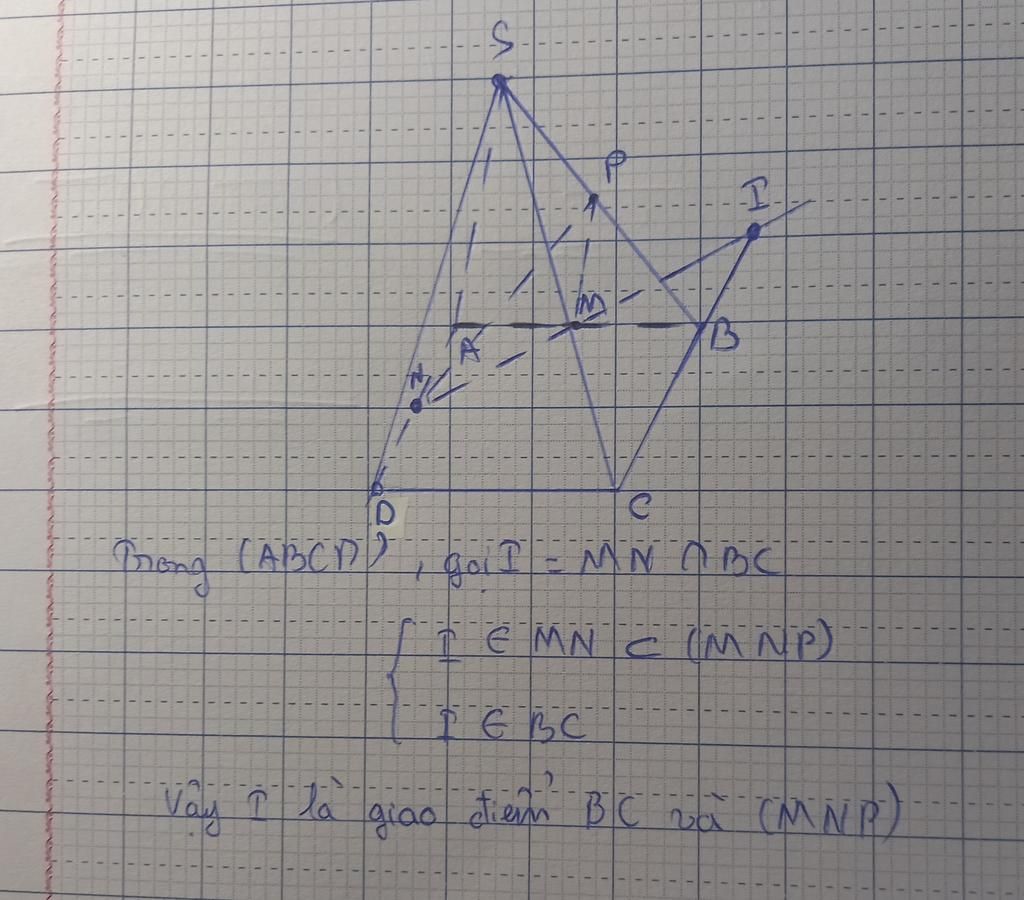 S
P
I
M
A
B
N
D
C
Trong (ABCD), gọi I = MN ∩ BC
{ I ∈ MN ⊂ (MNP)
I ∈ BC
Vậy I là giao điểm BC và (MNP)